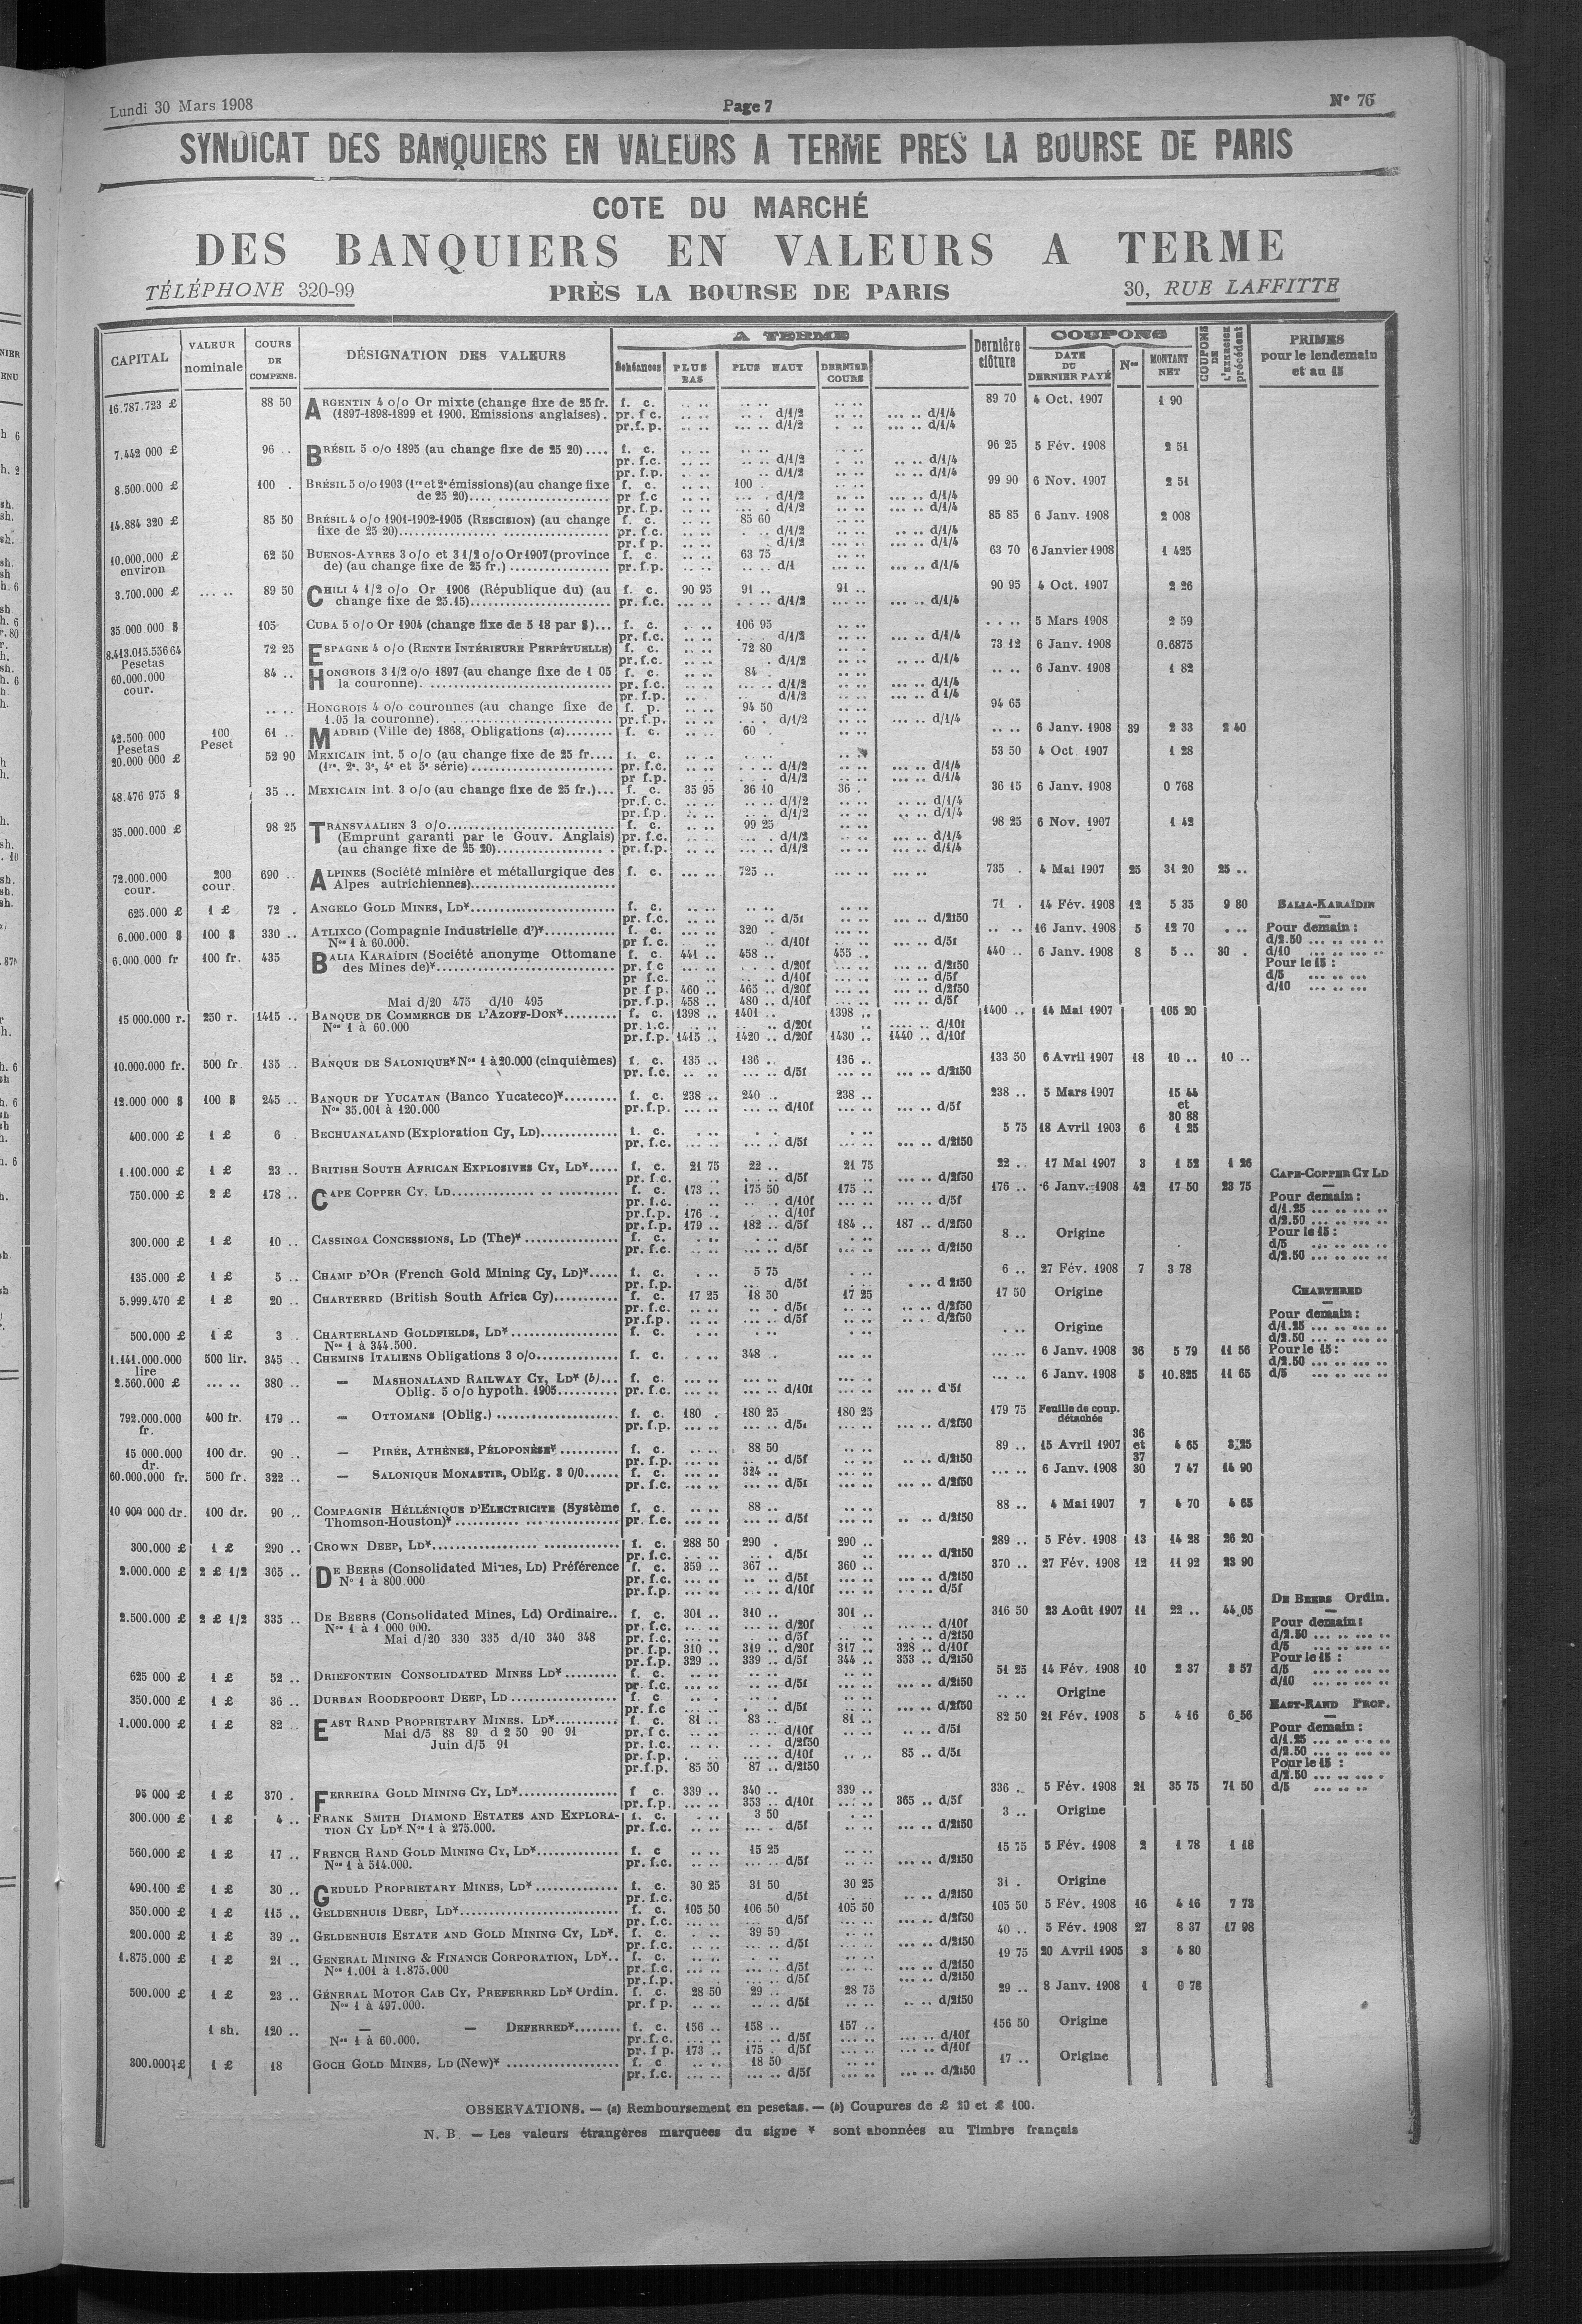 Lundi 30 Mars 1908 Page 7 N° 76
SYNDICAT DES BANQUIERS EN VALEURS A TERME PRES LA BOURSE DE PARIS
COTE DU MARCHÉ
DES BANQUIERS EN VALEURS A TERME
TÉLÉPHONE 320-99 PRÈS LA BOURSE DE PARIS 30, RUE LAFFITTE
CAPITAL VALEUR nominale COURS DE COMPENS. DÉSIGNATION DES VALEURS A TERME Échéances PLUS BAS PLUS HAUT DERNIER COURS Dernière clôture COUPONS DATE DU DERNIER PAYÉ Nos MONTANT NET COUPONS DE L'EXERCICE précédent PRIMES pour le lendemain et au 15
16.787.723 £ 88 50 ARGENTIN 4 o/o Or mixte (change fixe de 25 fr. f. c. 89 70 4 Oct. 1907 1 90
(1897-1898-1899 et 1900. Emissions anglaises). pr. f c. d/1/2 d/1/4
pr.f. p. d/1/2 d/1/4
7.442 000 £ 96 .. BRÉSIL 5 o/o 1895 (au change fixe de 25 20).... f. c. 96 25 5 Fév. 1908 2 51
pr. f.c. d/1/2 d/1/4
pr. f.p. d/1/2 d/1/4
8.500.000 £ 100 . BRÉSIL 5 o/o 1903 (1re et 2e émissions)(au change fixe f. c. 100 99 90 6 Nov. 1907 2 51
de 25 20).... pr f.c d/1/2 d/1/4
pr. f.p. d/1/2 d/1/4
14.884 320 £ 85 50 BRÉSIL 4 o/o 1901-1902-1905 (RESCISION) (au change f. c. 85 60 85 85 6 Janv. 1908 2 008
fixe de 25 20).... pr. f.c. d/1/2 d/1/4
pr. f p. d/1/2 d/1/4
10.000.000 £ environ 62 50 BUENOS-AYRES 3 o/o et 3 1/2 o/o Or 1907 (province f. c. 63 75 63 70 6 Janvier 1908 1 425
de) (au change fixe de 25 fr.) .... pr. f.p. d/1 d/1/4
3.700.000 £ 89 50 CHILI 4 1/2 o/o Or 1906 (République du) (au f. c. 90 95 91 .. 91 .. 90 95 4 Oct. 1907 2 26
change fixe de 25.15).... pr. f.c. d/1/2 d/1/4
35 000 000 $ 105 CUBA 5 o/o Or 1904 (change fixe de 5 18 par $)... f. c. 106 95 5 Mars 1908 2 59
pr. f.c. d/1/2 d/1/4
8.413.015.556 64 Pesetas 72 25 ESPAGNE 4 o/o (RENTE INTÉRIEURE PERPÉTUELLE) f. c. 72 80 73 12 6 Janv. 1908 0.6875
pr. f.c. d/1/2 d/1/4
60.000.000 cour. 84 .. HONGROIS 3 1/2 o/o 1897 (au change fixe de 1 05 f. c. 84 . 6 Janv. 1908 1 82
la couronne). .... pr. f.c. d/1/2 d/1/4
pr. f.p. d/1/2 d 1/4
HONGROIS 4 o/o couronnes (au change fixe de f. p. 94 50 94 65
1.05 la couronne). .... pr. f.p. d/1/2 d/1/4
42.500 000 Pesetas 100 Peset 61 .. MADRID (Ville de) 1868, Obligations (a)........ f. c. 60 . 6 Janv. 1908 39 2 33 2 40
20.000 000 £ 52 90 MEXICAIN int. 5 o/o (au change fixe de 25 fr.... f. c. 53 50 4 Oct. 1907 1 28
(1re, 2e, 3e, 4e et 5e série).... pr. f.c. d/1/2 d/1/4
pr f.p. d/1/2 d/1/4
48.476 975 $ 35 .. MEXICAIN int. 3 o/o (au change fixe de 25 fr.)... f. c. 35 95 36 10 36 . 36 15 6 Janv. 1908 0 768
pr. f. c. d/1/2 d/1/4
pr. f.p. d/1/2 d/1/4
35.000.000 £ 98 25 TRANSVAALIEN 3 o/o.... f. c. 99 25 98 25 6 Nov. 1907 1 42
(Emprunt garanti par le Gouv. Anglais) pr. f.c. d/1/2 d/1/4
(au change fixe de 25 20).... pr. f.p. d/1/2 d/1/4
72.000.000 cour. 200 cour. 690 .. ALPINES (Société minière et métallurgique des f. c. 725 .. 735 . 4 Mai 1907 25 31 20 25 ..
Alpes autrichiennes)....
625.000 £ 1 £ 72 . ANGELO GOLD MINES, LD*.... f. c. 71 . 14 Fév. 1908 12 5 35 9 80
pr. f.c. d/5f d/2f50
6.000.000 $ 100 $ 330 .. ATLIXCO (Compagnie Industrielle d')*.... f. c. 320 . 16 Janv. 1908 5 12 70
Nos 1 à 60.000. pr f. c. d/10f d/5f
6.000.000 fr 100 fr. 435 BALIA KARAÏDIN (Société anonyme Ottomane f. c. 441 .. 458 .. 455 .. 440 .. 6 Janv. 1908 8 5 .. 30 .
des Mines de)*.... pr. f c d/20f d/2f50
pr f.c. d/10f d/5f
pr f p. 460 .. 465 .. d/20f d/2f50
Mai d/20 475 d/10 495 pr. f.p. 458 .. 480 .. d/10f d/5f
BALIA-KARAÏDIN
Pour demain :
d/2.50
d/10
Pour le 15 :
d/5
d/10
15 000.000 r. 250 r. 1415 .. BANQUE DE COMMERCE DE L'AZOFF-DON*.... f. c. 1398 .. 1401 .. 1398 .. 1400 .. 14 Mai 1907 105 20
Nos 1 à 60.000 pr. f.c. d/20f d/10f
pr. f.p. 1415 .. 1420 .. d/20f 1430 .. 1440 .. d/10f
10.000.000 fr. 500 fr 135 .. BANQUE DE SALONIQUE* Nos 1 à 20.000 (cinquièmes) f. c. 135 .. 136 .. 136 .. 133 50 6 Avril 1907 18 10 .. 10 ..
pr. f.c. d/5f d/2f50
12.000 000 $ 100 $ 245 .. BANQUE DE YUCATAN (Banco Yucateco)*.... f. c. 238 .. 240 .. 238 .. 238 .. 5 Mars 1907 15 44 et 30 88
Nos 35.001 à 120.000 pr. f.p. d/10f d/5f
400.000 £ 1 £ 6 BECHUANALAND (Exploration Cy, LD).... f. c. 5 75 18 Avril 1903 6 1 25
pr. f.c. d/5f d/2f50
1.100.000 £ 1 £ 23 .. BRITISH SOUTH AFRICAN EXPLOSIVES CY, LD*.... f. c. 21 75 22 .. 21 75 22 .. 17 Mai 1907 3 1 52 1 26
pr f c. d/5f d/2f50
750.000 £ 2 £ 178 .. CAPE COPPER CY. LD.... f. c. 173 .. 175 50 175 .. 176 .. 6 Janv. 1908 42 17 50 23 75
pr. f.c. d/10f d/5f
pr. f.p. 176 .. d/10f
pr. f.p. 179 .. 182 .. d/5f 184 .. 187 .. d/2f50
CAPE-COPPER CY LD
Pour demain :
d/1.25
d/2.50
Pour le 15 :
d/5
d/2.50
300.000 £ 1 £ 10 .. CASSINGA CONCESSIONS, LD (The)*.... f. c. 8 .. Origine
pr. f.c. d/5f d/2f50
135.000 £ 1 £ 5 .. CHAMP D'OR (French Gold Mining Cy, LD)*.... f. c. 5 75 6 .. 27 Fév. 1908 7 3 78
pr. f.p. d/5f d 2f50
5.999.470 £ 1 £ 20 .. CHARTERED (British South Africa Cy).... f. c. 17 25 18 50 17 25 17 50 Origine
pr. f.c. d/5f d/2f50
pr. f.p. d/5f d/2f50
CHARTERED
Pour demain :
d/1.25
d/2.50
Pour le 15 :
d/2.50
d/5
500.000 £ 1 £ 3 CHARTERLAND GOLDFIELDS, LD*.... f. c. Origine
Nos 1 à 344.500.
1.141.000.000 lire 500 lir. 345 .. CHEMINS ITALIENS Obligations 3 o/o.... f. c. 348 . 6 Janv. 1908 36 5 79 11 56
2.560.000 £ 380 .. — MASHONALAND RAILWAY CY, LD* (b)... f. c. 6 Janv. 1908 5 10.825 11 65
Oblig. 5 o/o hypoth. 1905.... pr. f.c. d/10f d 5f
792.000.000 fr. 400 fr. 179 .. — OTTOMANS (Oblig.) .... f. c. 180 . 180 25 180 25 179 75 Feuille de coup. détachée
pr. f.p. d/5f d/2f50
15 000.000 dr. 100 dr. 90 .. — PIRÉE, ATHÈNES, PÉLOPONÈSE*.... f. c. 88 50 89 .. 15 Avril 1907 36 et 37 4 65 3,25
pr. f.p. d/5f d/2f50
60.000.000 fr. 500 fr. 322 .. — SALONIQUE MONASTIR, Oblig. 3 0/0.... f. c. 324 .. 6 Janv. 1908 30 7 47 14 90
pr. f.c. d/5f d/2f50
10 000 000 dr. 100 dr. 90 .. COMPAGNIE HÉLLÉNIQUE D'ELECTRICITE (Système f. c. 88 .. 88 .. 4 Mai 1907 7 4 70 4 65
Thomson-Houston)*.... pr. f.c. d/5f d/2f50
300.000 £ 1 £ 290 .. CROWN DEEP, LD*.... f. c. 288 50 290 . 290 .. 289 .. 5 Fév. 1908 13 14 28 26 20
pr. f.c. d/5f d/2f50
2.000.000 £ 2 £ 1/2 365 .. DE BEERS (Consolidated Mines, LD) Préférence f. c. 359 .. 367 .. 360 .. 370 .. 27 Fév. 1908 12 11 92 23 90
N° 1 à 800.000 pr. f.c. d/5f d/2f50
pr. f.p. d/10f d/5f
2.500.000 £ 2 £ 1/2 335 .. DE BEERS (Consolidated Mines, Ld) Ordinaire.. f. c. 301 .. 310 .. 301 .. 316 50 23 Août 1907 11 22 .. 44,05
Nos 1 à 1 000 000. pr. f.c. d/20f d/10f
Mai d/20 330 335 d/10 340 348 pr. f.c. d/5f d/2f50
pr. f.p. 310 .. 319 .. d/20f 317 .. 328 .. d/10f
pr. f.p. 329 .. 339 .. d/5f 344 .. 353 .. d/2f50
DE BEERS Ordin.
Pour demain :
d/2.50
d/5
Pour le 15 :
d/5
d/10
625 000 £ 1 £ 52 .. DRIEFONTEIN CONSOLIDATED MINES LD*.... f. c. 51 25 14 Fév. 1908 10 2 37 3 57
pr. f.c. d/5f d/2f50
350.000 £ 1 £ 36 .. DURBAN ROODEPOORT DEEP, LD.... f. c Origine
pr. f.c d/5f d/2f50
1.000.000 £ 1 £ 82 EAST RAND PROPRIETARY MINES. LD*.... f. c. 81 .. 83 .. 81 .. 82 50 21 Fév. 1908 5 4 16 6,56
Mai d/5 88 89 d 2 50 90 91 pr. f c. d/10f d/5f
Juin d/5 91 pr. f.c. d/2f50
pr. f.p. d/10f 85 .. d/5f
pr. f.p. 85 50 87 .. d/2f50
EAST-RAND PROP.
Pour demain :
d/1.25
d/2.50
Pour le 15 :
d/2.50
d/5
95 000 £ 1 £ 370 . FERREIRA GOLD MINING CY, LD*.... f c. 339 .. 340 .. 339 .. 336 .. 5 Fév. 1908 21 35 75 71 50
pr. f.p. 353 .. d/10f 365 .. d/5f
300.000 £ 1 £ 4 .. FRANK SMITH DIAMOND ESTATES AND EXPLORA- f. c. 3 50 3 .. Origine
TION CY LD* Nos 1 à 275.000. pr. f.c. d/5f d/2f50
560.000 £ 1 £ 17 .. FRENCH RAND GOLD MINING CY, LD*.... f. c 15 25 15 75 5 Fév. 1908 2 1 78 1 18
Nos 1 à 514.000. pr. f.c. d/5f d/2f50
490.100 £ 1 £ 30 .. GEDULD PROPRIETARY MINES, LD*.... f. c. 30 25 31 50 30 25 31 . Origine
pr. f.c. d/5f d/2f50
350.000 £ 1 £ 115 .. GELDENHUIS DEEP, LD*.... f. c. 105 50 106 50 105 50 105 50 5 Fév. 1908 16 4 16 7 73
pr. f.c. d/5f d/2f50
200.000 £ 1 £ 39 .. GELDENHUIS ESTATE AND GOLD MINING CY, LD*. f. c. 39 50 40 .. 5 Fév. 1908 27 8 37 17 98
pr. f.c. d/5f d/2f50
1.875.000 £ 1 £ 21 .. GENERAL MINING & FINANCE CORPORATION, LD*.. f. c. 19 75 20 Avril 1905 3 4 80
Nos 1.001 à 1.875.000 pr. f.c. d/5f d/2f50
pr. f.p. d/5f d/2f50
500.000 £ 1 £ 23 .. GÉNERAL MOTOR CAB CY, PREFERRED LD* Ordin. f. c. 28 50 29 .. 28 75 29 .. 8 Janv. 1908 1 0 78
Nos 1 à 497.000. pr. f p. d/5f d/2f50
1 sh. 120 .. — — DEFERRED*.... f. c. 156 .. 158 .. 157 .. 156 50 Origine
Nos 1 à 60.000. pr. f.c. d/5f d/10f
pr. f p. 173 .. 175 . d/5f d/10f
300.000 £ 1 £ 18 GOCH GOLD MINES, LD (New)*.... f. c 18 50 17 .. Origine
pr. f.c. d/5f d/2f50
OBSERVATIONS. — (a) Remboursement en pesetas. — (b) Coupures de £ 20 et £ 100.
N. B. — Les valeurs étrangères marquees du signe * sont abonnées au Timbre français